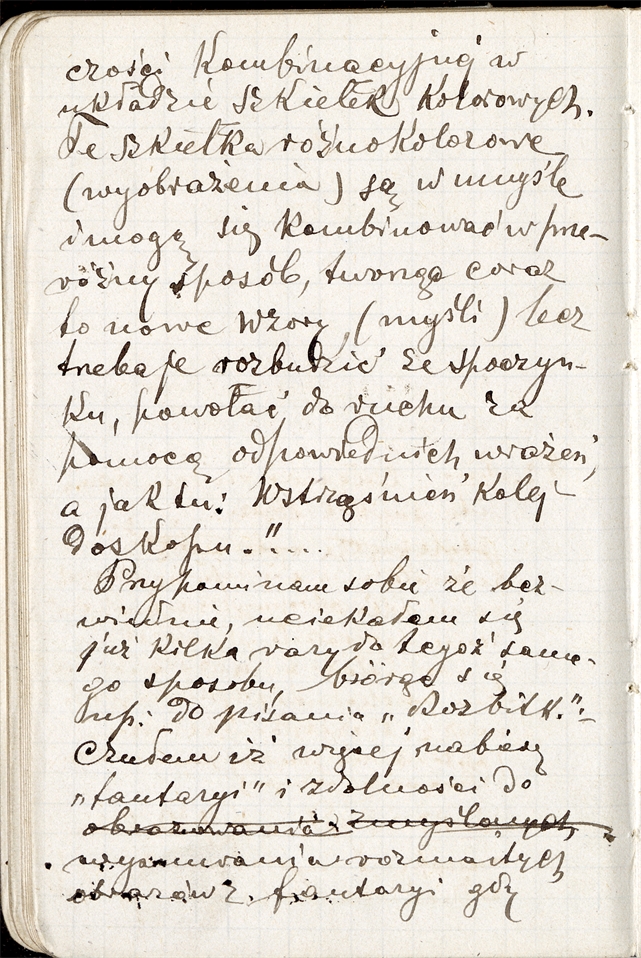 czości Kombinacyjnej w
układzie szkiełek kolorowych.
Te szkiełka różnokolorowe
(wyobrażenia) są w umyśle
i mogą się kombinować w prze-
różny sposób, tworząc coraz
to nowe wzory, (myśli) lecz
trzeba je rozbudzić ze spoczyn-
ku, powołać do ruchu za
pomocą odpowiednich wrażeń,
a jak tu: Wstrząśnień Kalej-
doskopu."...
Przypominam sobie że bez-
wiednie, uciekałem się
już kilka razy do tegoż same-
go sposobu, biorąc się
np: do pisania „Rozbitk."-
Czułem iż więcej nabiorę
„fantazyi" i zdolności do
obrazowania zmyślonych
wysnuwania rozmaitych
obrazów z fantazyi gdy